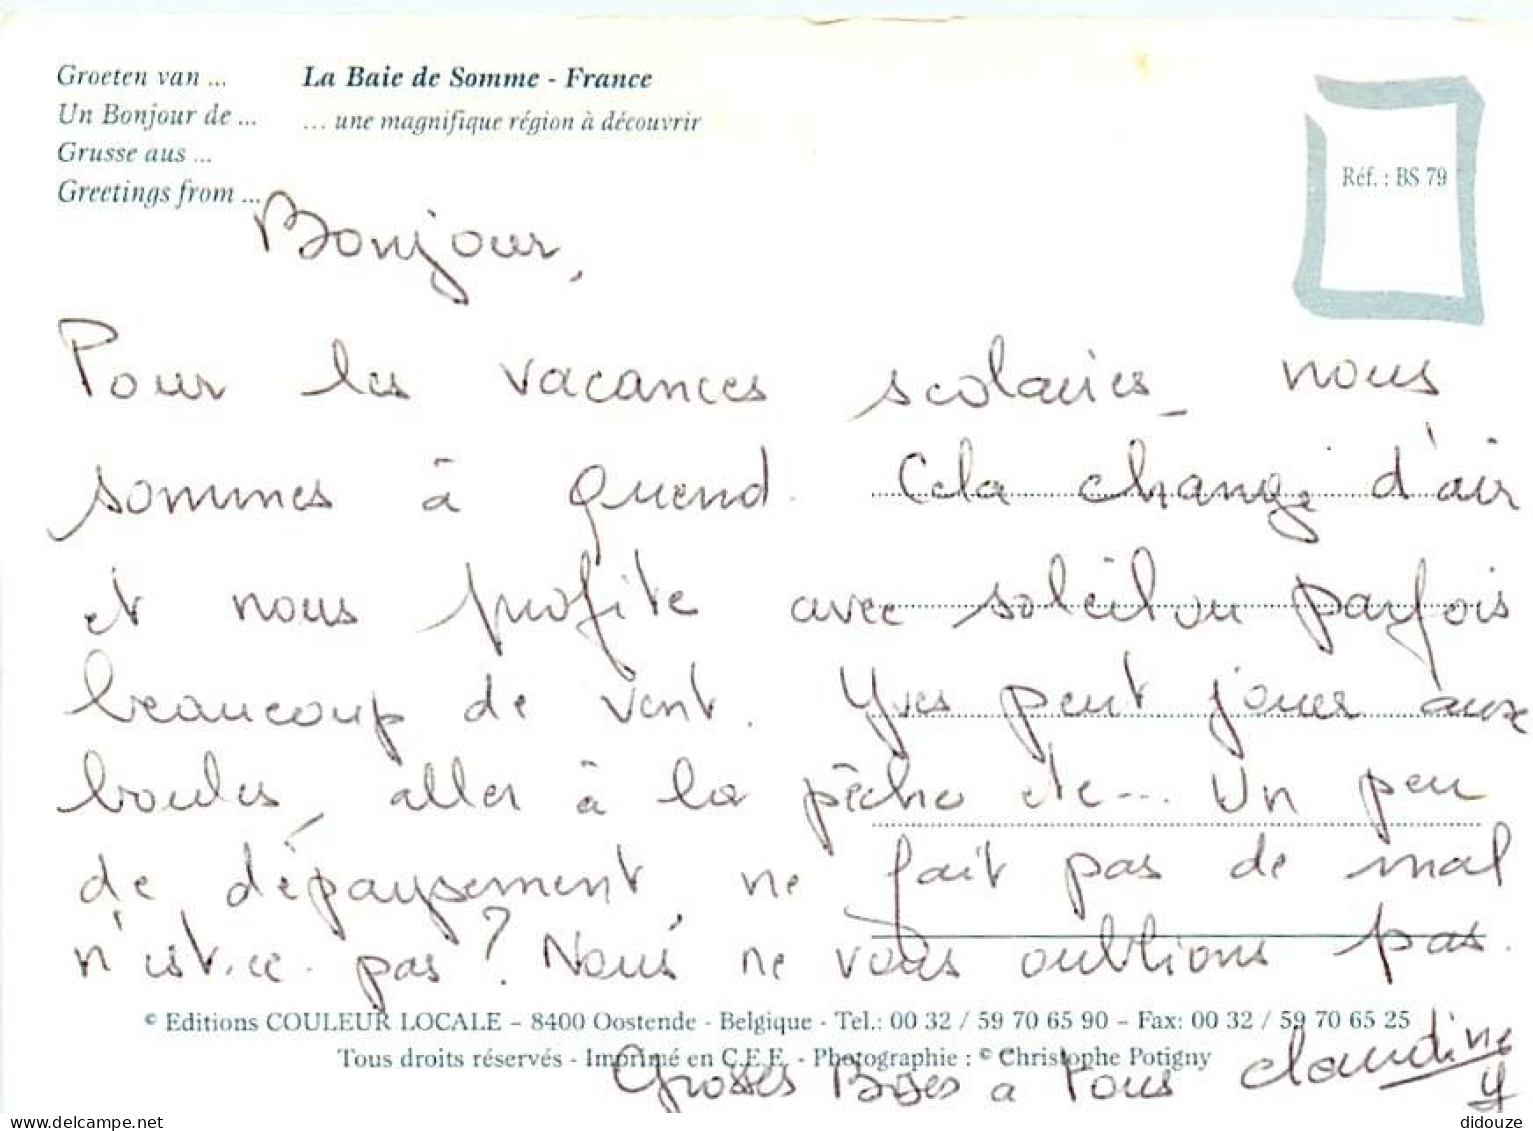 Groeten van ...
La Baie de Somme - France
Un Bonjour de ...
... une magnifique région à découvrir
Grusse aus ...
Greetings from ...
Réf. : BS 79
Bonjour,
Pour les vacances scolaires, nous
sommes à Quend. Cela change d'air
et nous profite avec soleil ou parfois
beaucoup de vent. Yves peut jouer aux
boules, aller à la pêche etc... Un peu
de dépaysement ne fait pas de mal
n'est-ce-pas ? Nous ne vous oublions pas.
© Editions COULEUR LOCALE – 8400 Oostende - Belgique - Tel.: 00 32 / 59 70 65 90 – Fax: 00 32 / 59 70 65 25
Tous droits réservés - Imprimé en C.E.E. - Photographie : © Christophe Potigny
Grosses Bises a tous Claudine
Y
delcampe.net
didouze